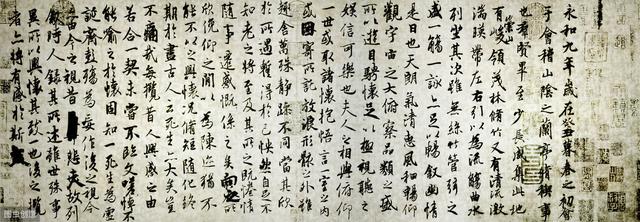 永和九年歲在癸丑暮春之初
于會稽山陰之蘭亭脩禊事
也羣賢畢至少長咸集此地
有崇山峻領茂林脩竹又有清流激
湍暎帶左右引以為流觴曲水
列坐其次雖無絲竹管弦之
盛一觴一詠亦足以暢敘幽情
是日也天朗氣清惠風和暢仰
觀宇宙之大俯察品類之盛
所以遊目騁懷足以極視聽之
娛信可樂也夫人之相與俯仰
一世或取諸懷抱悟言一室之內
或因寄所託放浪形骸之外雖
趣舍萬殊靜躁不同當其欣
於所遇蹔得於己怏然自足不
知老之將至及其所之既惓情
隨事遷感慨係之矣向之所
欣俛仰之閒以為陳迹猶不
能不以之興懷況脩短隨化終
期於盡古人云死生亦大矣豈
不痛哉每攬昔人興感之由
若合一契未甞不臨文嗟悼不
能喻之於懷固知一死生為虛
誕齊彭殤為妄作後之視今
亦由今之視昔悲夫故列
敘時人錄其所述雖世殊事
異所以興懷其致一也後之攬
者亦將有感於斯